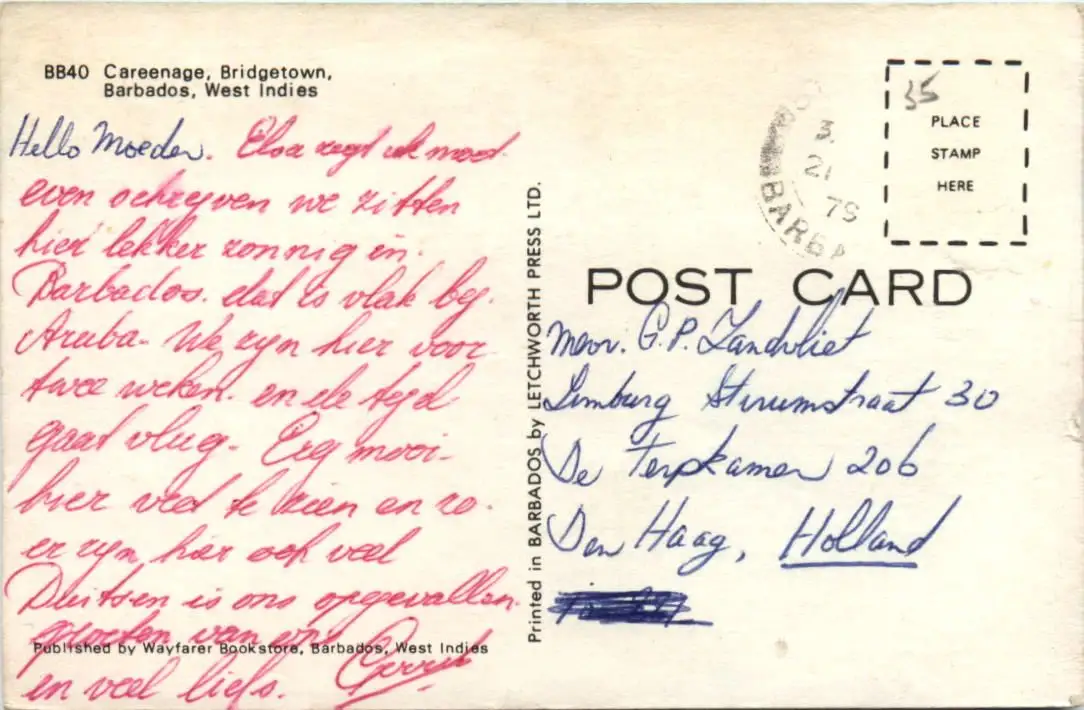 BB40 Careenage, Bridgetown,
Barbados, West Indies
Hello Moeder. Elsa zegt ik moet
even schreyven we zitten
hier lekker zonnig in.
Barbados. dat is vlak bey.
Aruba. We zyn hier voor
twee weken. en de teyd
gaat vlug. Erg mooi.
hier veel te zien en zo.
er zyn hier ook veel
Duitsen is ons opgevallen.
groeten van ons
Published by Wayfarer Bookstore, Barbados, West Indies
en veel liefs. Gerrit
Printed in BARBADOS by LETCHWORTH PRESS LTD.
35
PLACE
STAMP
HERE
3
21
79
BARBA
POST CARD
mevr. G.P. Zandvliet
Limburg Stirumstraat 30
De Terpkamer 206
Den Haag, Holland